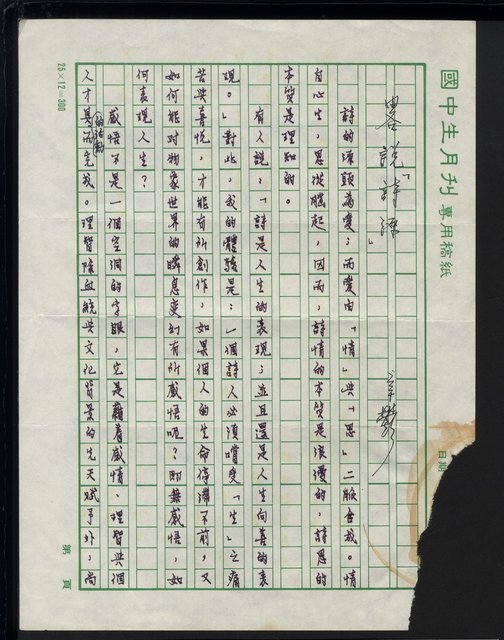 國中生月刊 專用稿紙
日期
畧說「詩源」
辛鬱
詩的源頭為愛；而愛由「情」與「思」二脈合成。情
自心生，思從腦起，因而，詩情的本質是浪漫的，詩思的
本質是理知的。
有人說：「詩是人生的表現；並且還是人生向善的表
現。」對此，我的體驗是：一個詩人必須嚐受「生」之痛
苦與喜悅，才能有所創作，如果個人的生命停滯不前，又
如何能對物象世界的瞬息變幻有所感悟呢？即無感悟，如
何表現人生？
感悟不是一個空洞的字眼，它是藉着感情，理智與個
人才具的活動而完成。理智除血統與文化背景的先天賦予外，尚
25×12=300
第 頁